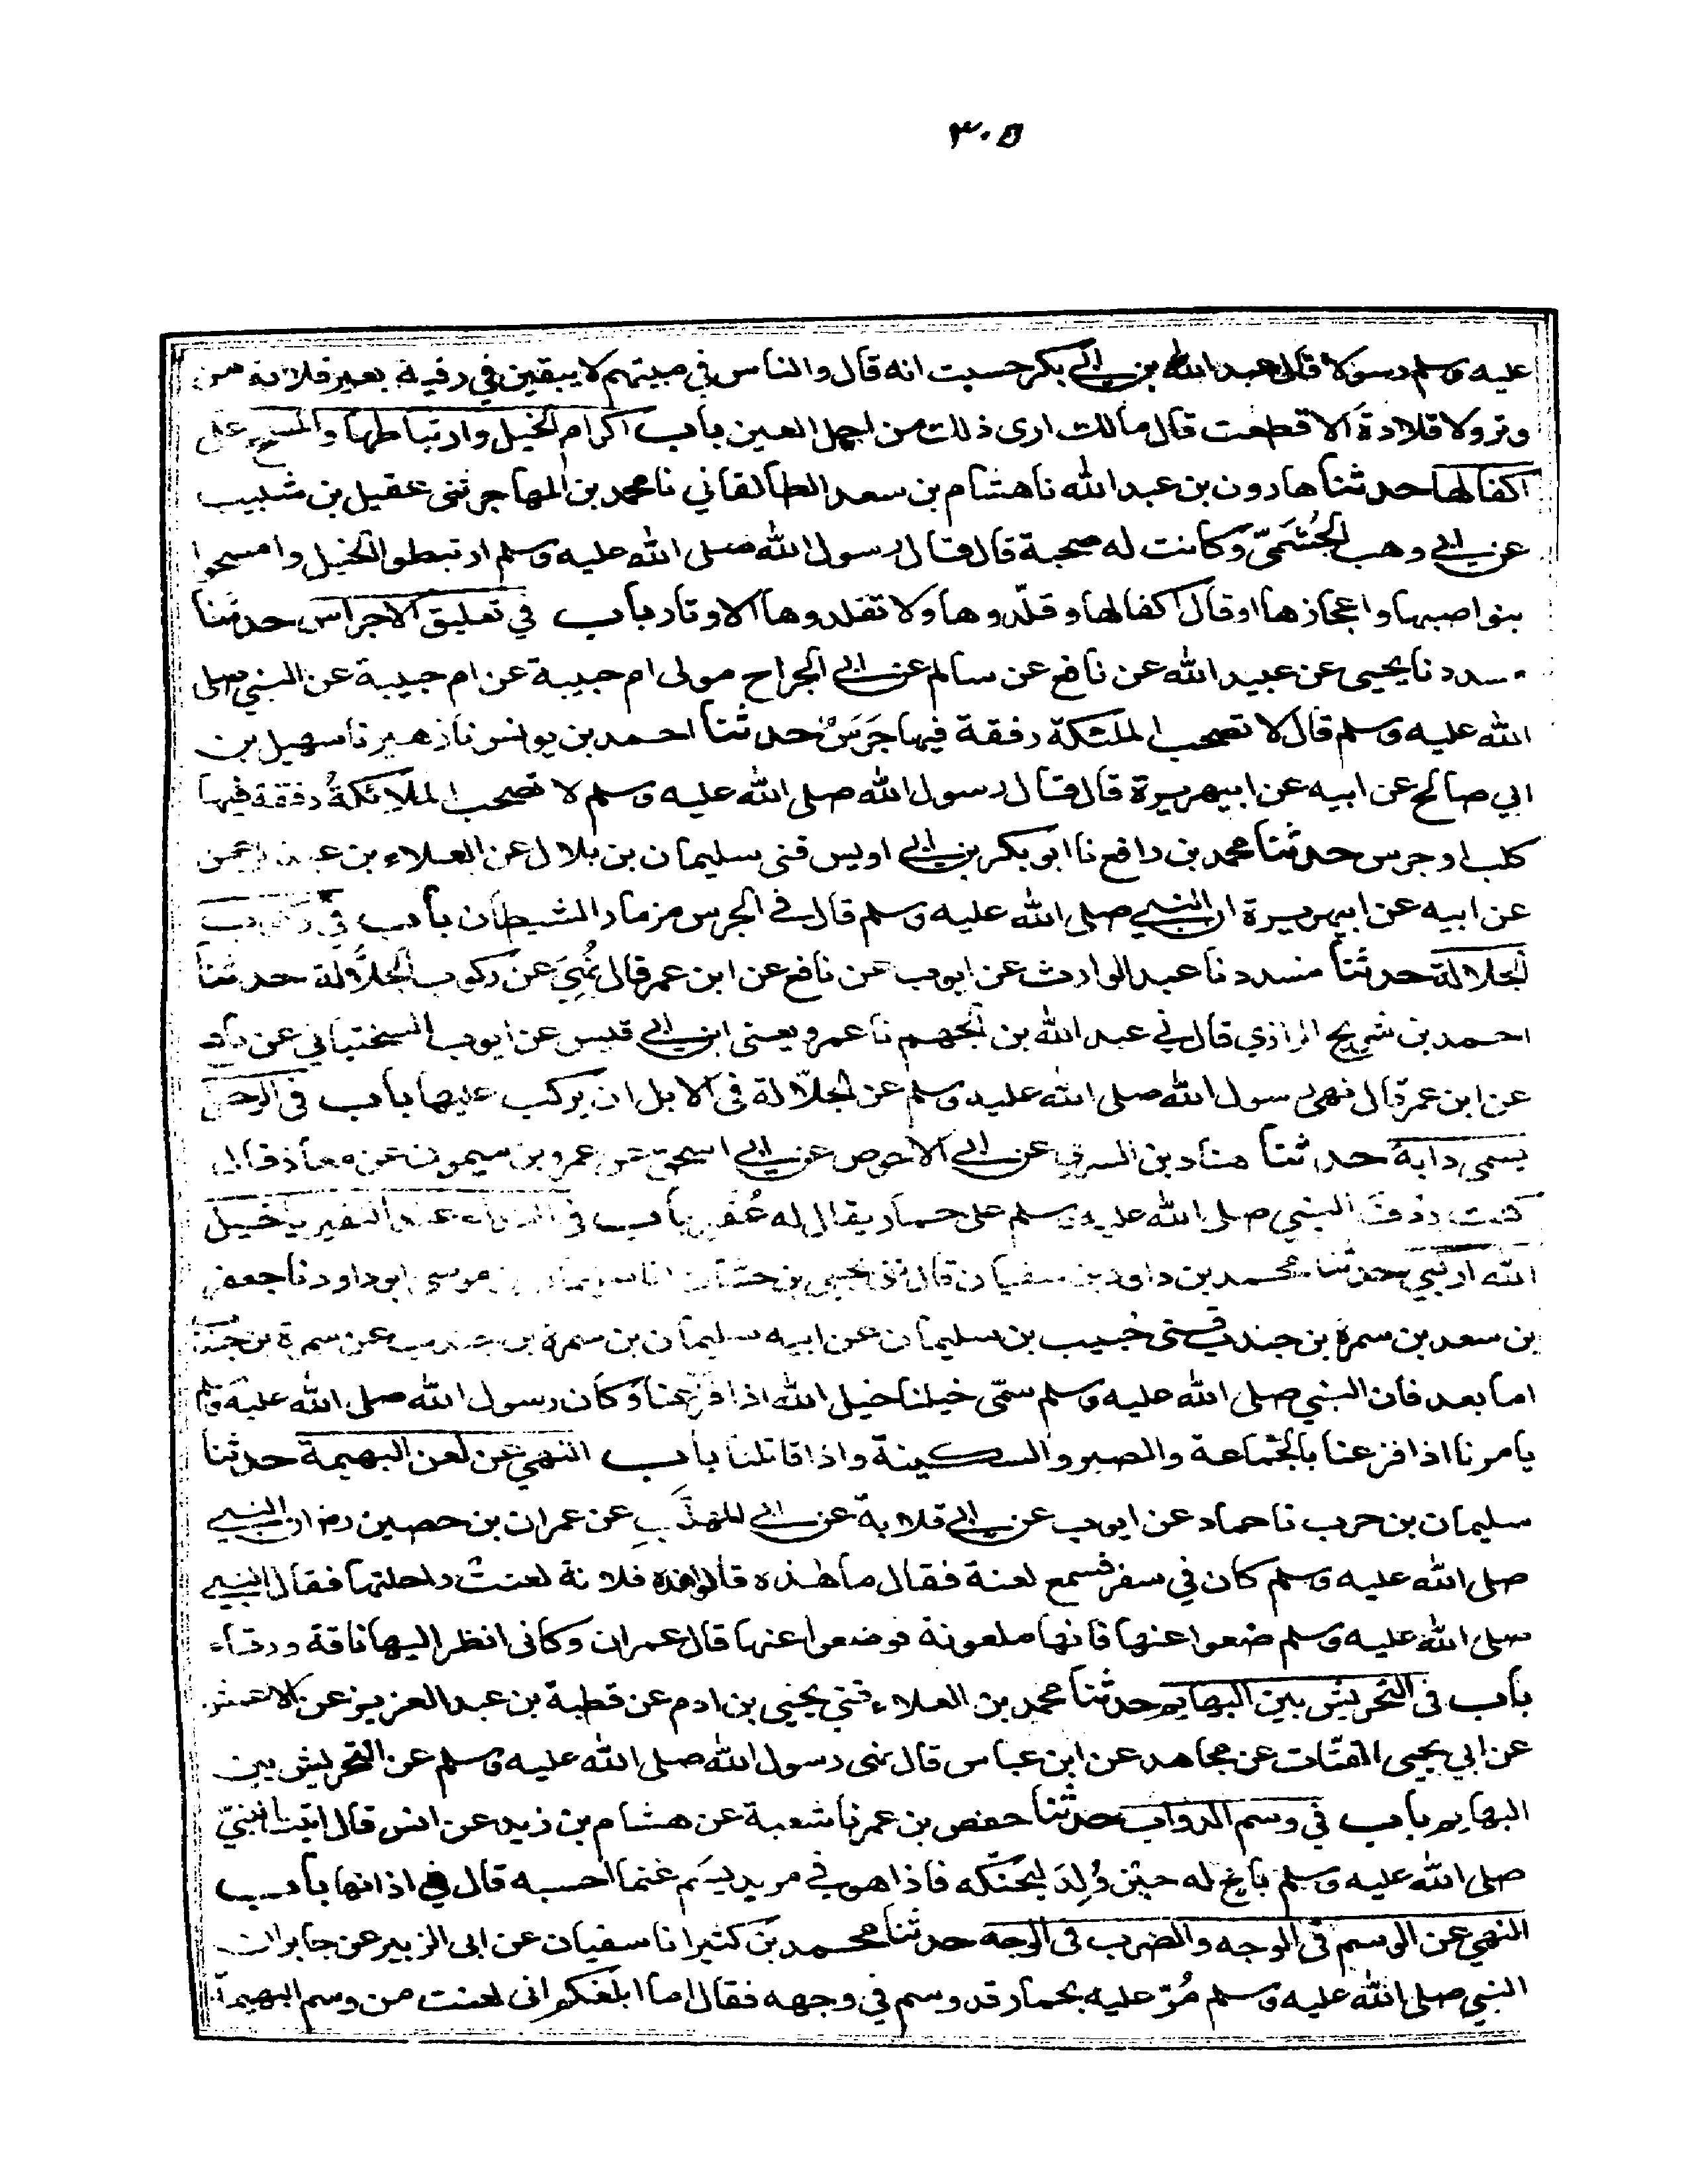 ٣٠٥
عليه وسلم رسولا قال عبد الله بن ابي بكر حسبت انه قال والناس في مبيتهم لا يبقين في رقبة بعير قلادة من
وتر ولا قلادة الا قطعت قال مالك ارى ذلك من اجل العين باب اكرام الخيل وارتباطها والمسح على
اكفالها حدثنا هارون بن عبد الله نا هشام بن سعد الطالقاني نا محمد بن المهاجر ثنى عقيل بن شبيب
عن ابي وهب الجُشَميّ وكانت له صحبة قال قال رسول الله صلى الله عليه وسلم ارتبطوا الخيل وامسحوا
بنواصيها واعجازها او قال اكفالها وقلّدوها ولا تقلدوها الاوتار باب في تعليق الاجراس حدثنا
مسدد نا يحيى عن عبيد الله عن نافع عن سالم عن ابي الجراح مولى ام حبيبة عن ام حبيبة عن النبي صلى
الله عليه وسلم قال لا تصحب الملئكة رفقة فيها جَرَسٌ حدثنا احمد بن يونس نا زهير نا سهيل بن
ابي صالح عن ابيه عن ابيهريرة قال قال رسول الله صلى الله عليه وسلم لا تصحب الملائكةُ رفقة فيها
كلب او جرس حدثنا محمد بن رافع نا ابو بكر بن ابي اويس ثنى سليمان بن بلال عن العلاء بن عبد الرحمن
عن ابيه عن ابيهريرة ان النبي صلى الله عليه وسلم قال في الجرس مزمار الشيطان باب في ركوب
الجلالة حدثنا مسدد نا عبد الوارث عن ايوب عن نافع عن ابن عمر قال نُهِيَ عن ركوب الجلّالة حدثنا
احمد بن شريح الرازي قال ني عبد الله بن الجهم نا عمرو يعنى ابن ابي قيس عن ايوب السختياني عن نافع
عن ابن عمر قال نهى رسول الله صلى الله عليه وسلم عن الجلّالة في الابل ان يركب عليها باب في الرجل
يسمى دابة حدثنا هناد بن السري عن ابي الاحوص عن ابي اسحق عن عمرو بن ميمون عن معاذ قال
كنت ردفَ النبي صلى الله عليه وسلم على حمار يقال له عُفَير باب في النداء عند النفير يا خيل
الله اركبي حدثنا محمد بن داود بن سفيان قال ثني يحيى بن حسّان انا سليمان بن موسى ابو داود نا جعفر
بن سعد بن سمرة بن جندب ثنى خُبيب بن سليمان عن ابيه سليمان بن سمرة بن جندب عن سمرة بن جندب
اما بعد فان النبي صلى الله عليه وسلم سمّى خيلنا خيل الله اذا فزعنا وكان رسول الله صلى الله عليه وسلم
يامرنا اذا فزعنا بالجماعة والصبر والسكينة واذا قاتلنا باب النهي عن لعن البهيمة حدثنا
سليمان بن حرب نا حماد عن ايوب عن ابي قلابة عن ابي المهذَّبِ عن عمران بن حصين رض ان النبي
صلى الله عليه وسلم كان في سفر فسمع لعنة فقال ما هذه قالوا هذه فلانة لعنت راحلتها فقال النبي
صلى الله عليه وسلم ضعوا عنها فانها ملعونة فوضعوا عنها قال عمران وكانى انظر اليها ناقة ورقاء
باب في التحريش بين البهايم حدثنا محمد بن العلاء ثني يحيى بن ادم عن قطبة بن عبد العزيز عن الاعمش
عن ابي يحيى القتّات عن مجاهد عن ابن عباس قال نهى رسول الله صلى الله عليه وسلم عن التحريش بين
البهايم باب في وسم الدواب حدثنا حفص بن عمر نا شعبة عن هشام بن زيد عن انس قال اتيت النبيّ
صلى الله عليه وسلم باخٍ له حين وُلِدَ ليحنّكه فاذا هو في مربد يَسِم غنما احسبه قال في اذانها باب
النهي عن الوسم في الوجه والضرب في الوجه حدثنا محمد بن كثير انا سفيان عن ابى الزبير عن جابر ان
النبي صلى الله عليه وسلم مُرّ عليه بحمار قد وسم في وجهه فقال اما ابلغكم انى لعنت من وسم البهيمة